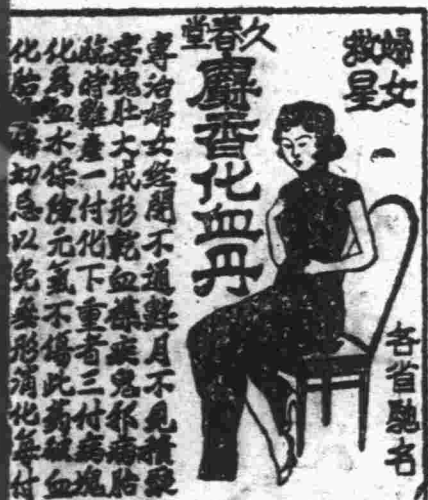 婦女
救星
各省馳名
久春堂
麝香化血丹
專治婦女經閉不通數月不見積聚
痞塊肚大成形乾血癆疾鬼邪病胎
臨時難產一付化下重者三付病塊
化為血水保險元氣不傷此藥破血
化胎婦切忌以免無形消化每付